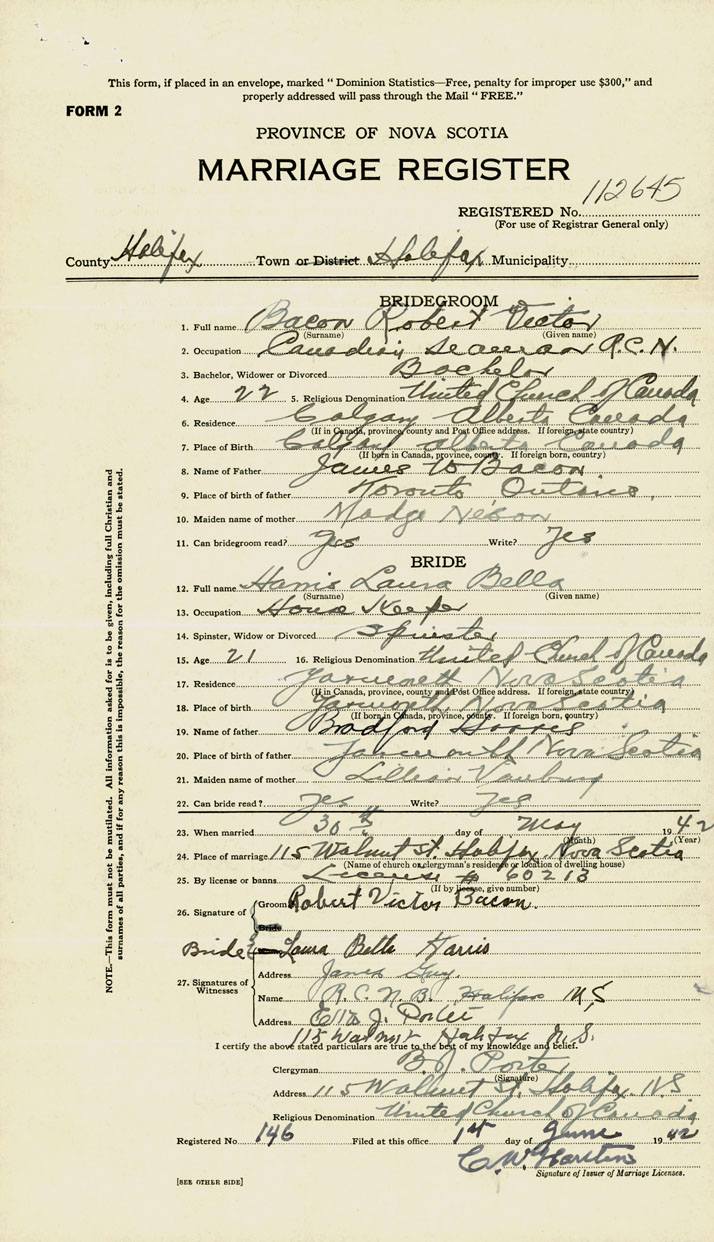 This form, if placed in an envelope, marked " Dominion Statistics—Free, penalty for improper use $300," and
properly addressed will pass through the Mail " FREE."
FORM 2
PROVINCE OF NOVA SCOTIA
MARRIAGE REGISTER
REGISTERED No. 112645
(For use of Registrar General only)
County Halifax Town or District Halifax Municipality
BRIDEGROOM
1. Full name Bacon Robert Victor
(Surname) (Given name)
2. Occupation Canadian Seaman R.C.N.
3. Bachelor, Widower or Divorced Bachelor
4. Age 22 5. Religious Denomination United Church of Canada
6. Residence Calgary Alberta Canada
(If in Canada, province, county and Post Office address. If foreign, state country)
7. Place of Birth Calgary Alberta Canada
(If born in Canada, province, county. If foreign born, country)
8. Name of Father James W Bacon
9. Place of birth of father Toronto Ontario
10. Maiden name of mother Madge Nelson
11. Can bridegroom read? Yes Write? Yes
BRIDE
12. Full name Harris Laura Bella
(Surname) (Given name)
13. Occupation House Keeper
14. Spinster, Widow or Divorced Spinster
15. Age 21 16. Religious Denomination United Church of Canada
17. Residence Yarmouth Nova Scotia
(If in Canada, province, county and Post Office address. If foreign, state country)
18. Place of birth Yarmouth, Nova Scotia
(If born in Canada, province, county. If foreign born, country)
19. Name of father Bradford Harris
20. Place of birth of father Yarmouth Nova Scotia
21. Maiden name of mother Lillian
22. Can bride read? Yes Write? Yes
23. When married 30th day of May 1942
(Month) (Year)
24. Place of marriage 115 Walnut St. Halifax, Nova Scotia
(Name of church or clergyman's residence or location of dwelling house)
25. By license or banns License # 60213
(If by license, give number)
26. Signature of Groom Robert Victor Bacon.
Bride
Bride Laura Bella Harris
27. Signatures of Witnesses
Address James Guy
Name R.C.N.B. Halifax N.S
Address Ella J. Porter
115 Walnut Halifax N.S.
I certify the above stated particulars are true to the best of my knowledge and belief.
Clergyman B.J. Porter
(Signature)
Address 115 Walnut St. Halifax, N.S
Religious Denomination United Church of Canada
Registered No. 146 Filed at this office 1st day of June 1942
C. W.
Signature of Issuer of Marriage Licenses.
[SEE OTHER SIDE]
NOTE.—This form must not be mutilated. All information asked for is to be given, including full Christian and
surnames of all parties, and if for any reason this is impossible, the reason for the omission must be stated.